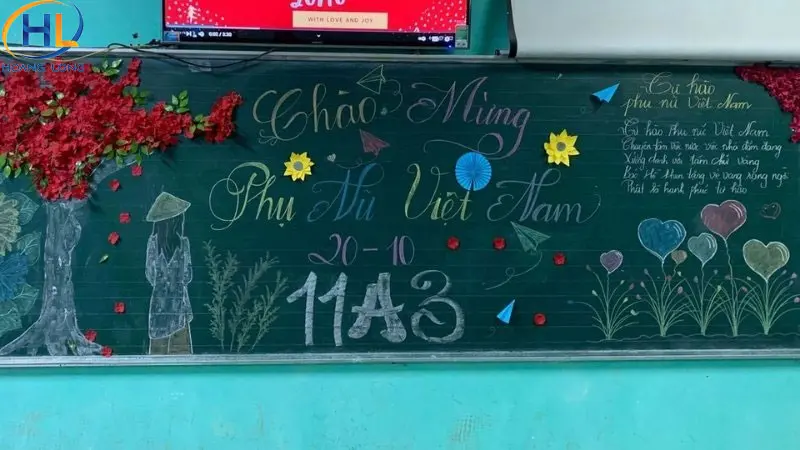 HL
HOANG LONG
WITH LOVE AND JOY
Chào Mừng
Phụ Nữ Việt Nam
20-10
11A3
Tự hào
phụ nữ Việt Nam
Tự hào Phụ nữ Việt Nam
Chuyên tâm việc nước việc nhà đảm đang
Xứng danh với tám chữ vàng
Bác Hồ khen tặng vẻ vang rạng ngời
là hạnh phúc tự hào